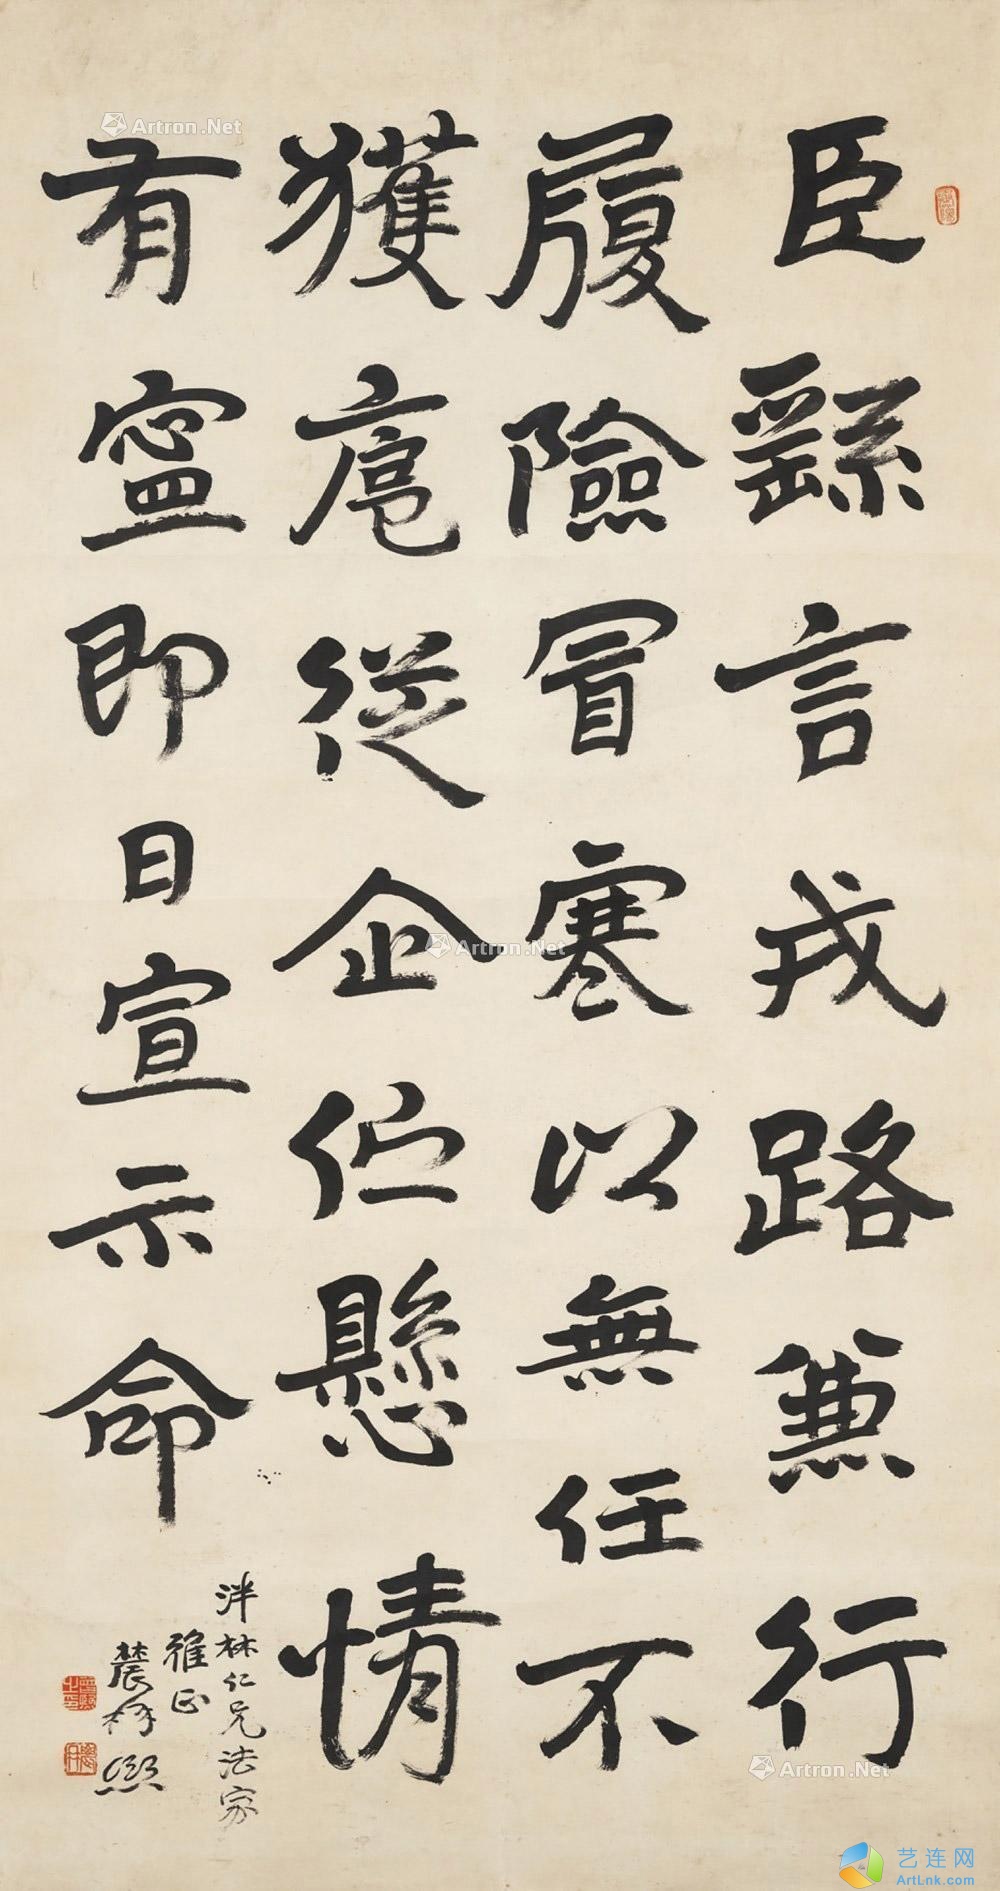 臣繇言戎路兼行
履險冒寒以無任不
獲扈從企佇懸情
有寧即日宣示命
泮林仁兄法家
雅正
農髯熙
Artron.Net
Artron.Net
Artron.Net
艺连网
ArtLnk.com